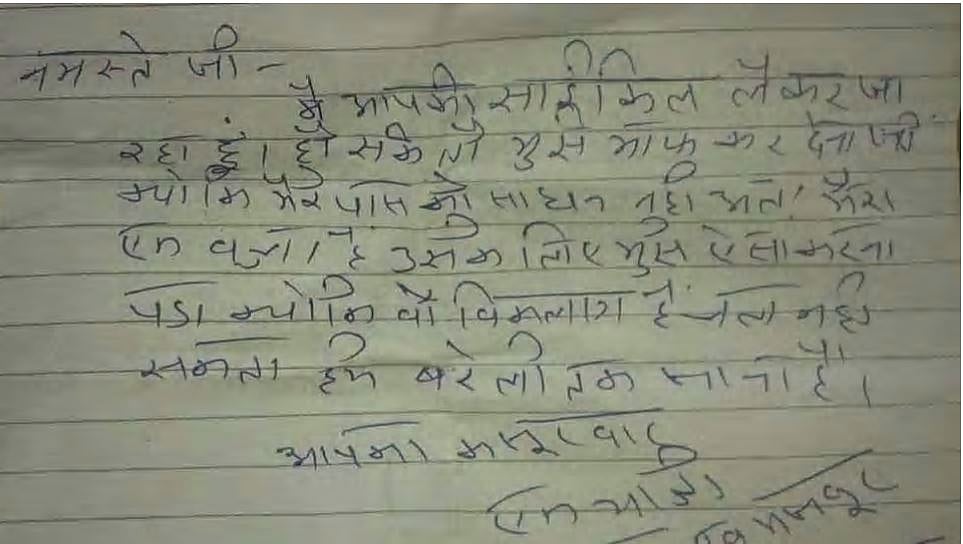 नमस्ते जी -
मै आपकी साईकिल लेकर जा
रहा हूं। हो सके तो मुझे माफ कर देना जी
क्योकि मेरे पास को साधन नही था। मेरा
एक बच्चा है उसके लिए मुझे ऐसा करना
पडा क्योकि वो विकलांग है चल नही
सकता हमे बरेली तक जाना है।
आपका कसूरवार
एक यात्री
मजदूर